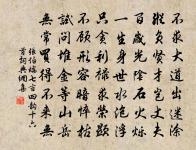 不求大道出迷途
縱負賢才豈丈夫
百歲光陰石火爍
一生身世水泡浮
只貪利祿求榮顯
不顧形容暗悴枯
試問堆金等山岳
無常買得不來無
張伯端七言四韻十六
首詞典網集